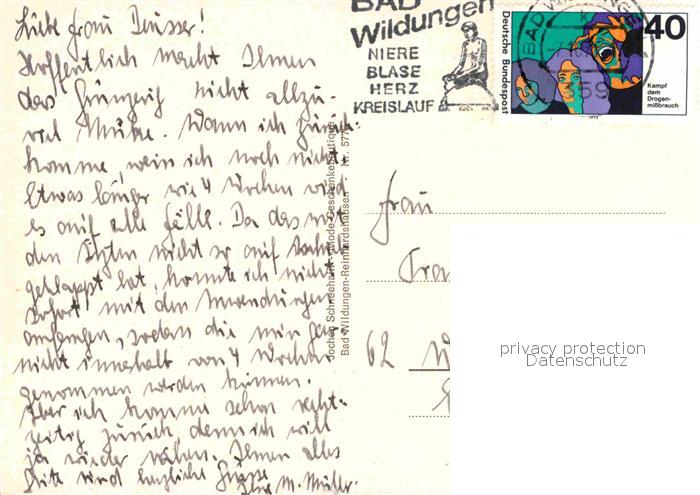 BAD
Wildungen
NIERE
BLASE
HERZ
KREISLAUF
BAD WILDUNGEN
359
Deutsche Bundespost
40
Kampf
dem
Drogen-
mißbrauch
1975
Liebe Frau
Hoffentlich macht Ihnen
das Grünzeug nicht allzu-
viel Mühe. Wann ich zurück-
komme, weiß ich noch nicht.
Etwas länger wie 4 Wochen wird
es auf alle Fälle. Da das mit
den nicht so auf
geklappt hat, konnte ich nicht
sofort mit den Anwendungen
anfangen, sodass die nun gar
nicht innerhalb von 4 Wochen
genommen werden können.
Aber ich komme schon recht-
zeitig zurück, denn ich will
ja wieder nähen. Ihnen alles
Gute und herzliche Grüsse
Ihre M. Müller.
Jochen Schneehahn - Mode-Geschenkeboutique
Bad Wildungen-Reinhardshausen - Nr. 577
Frau
62
privacy protection
Datenschutz